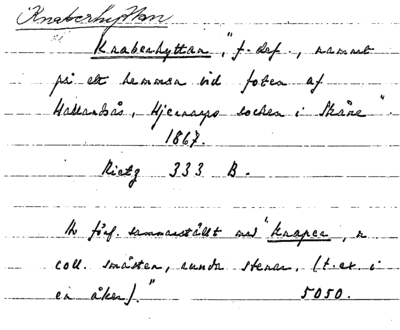 Knaberhyttan
Knaberhyttan, "f. def., namnet
på ett hemman vid foten af
Hallandsås, Hjernarps socken i Skåne".
1867.
Rietz 333 B.
Av förf. sammanställt med "knaper, n
coll. småsten, runda stenar, (t. ex. i
en åker)."
5050.